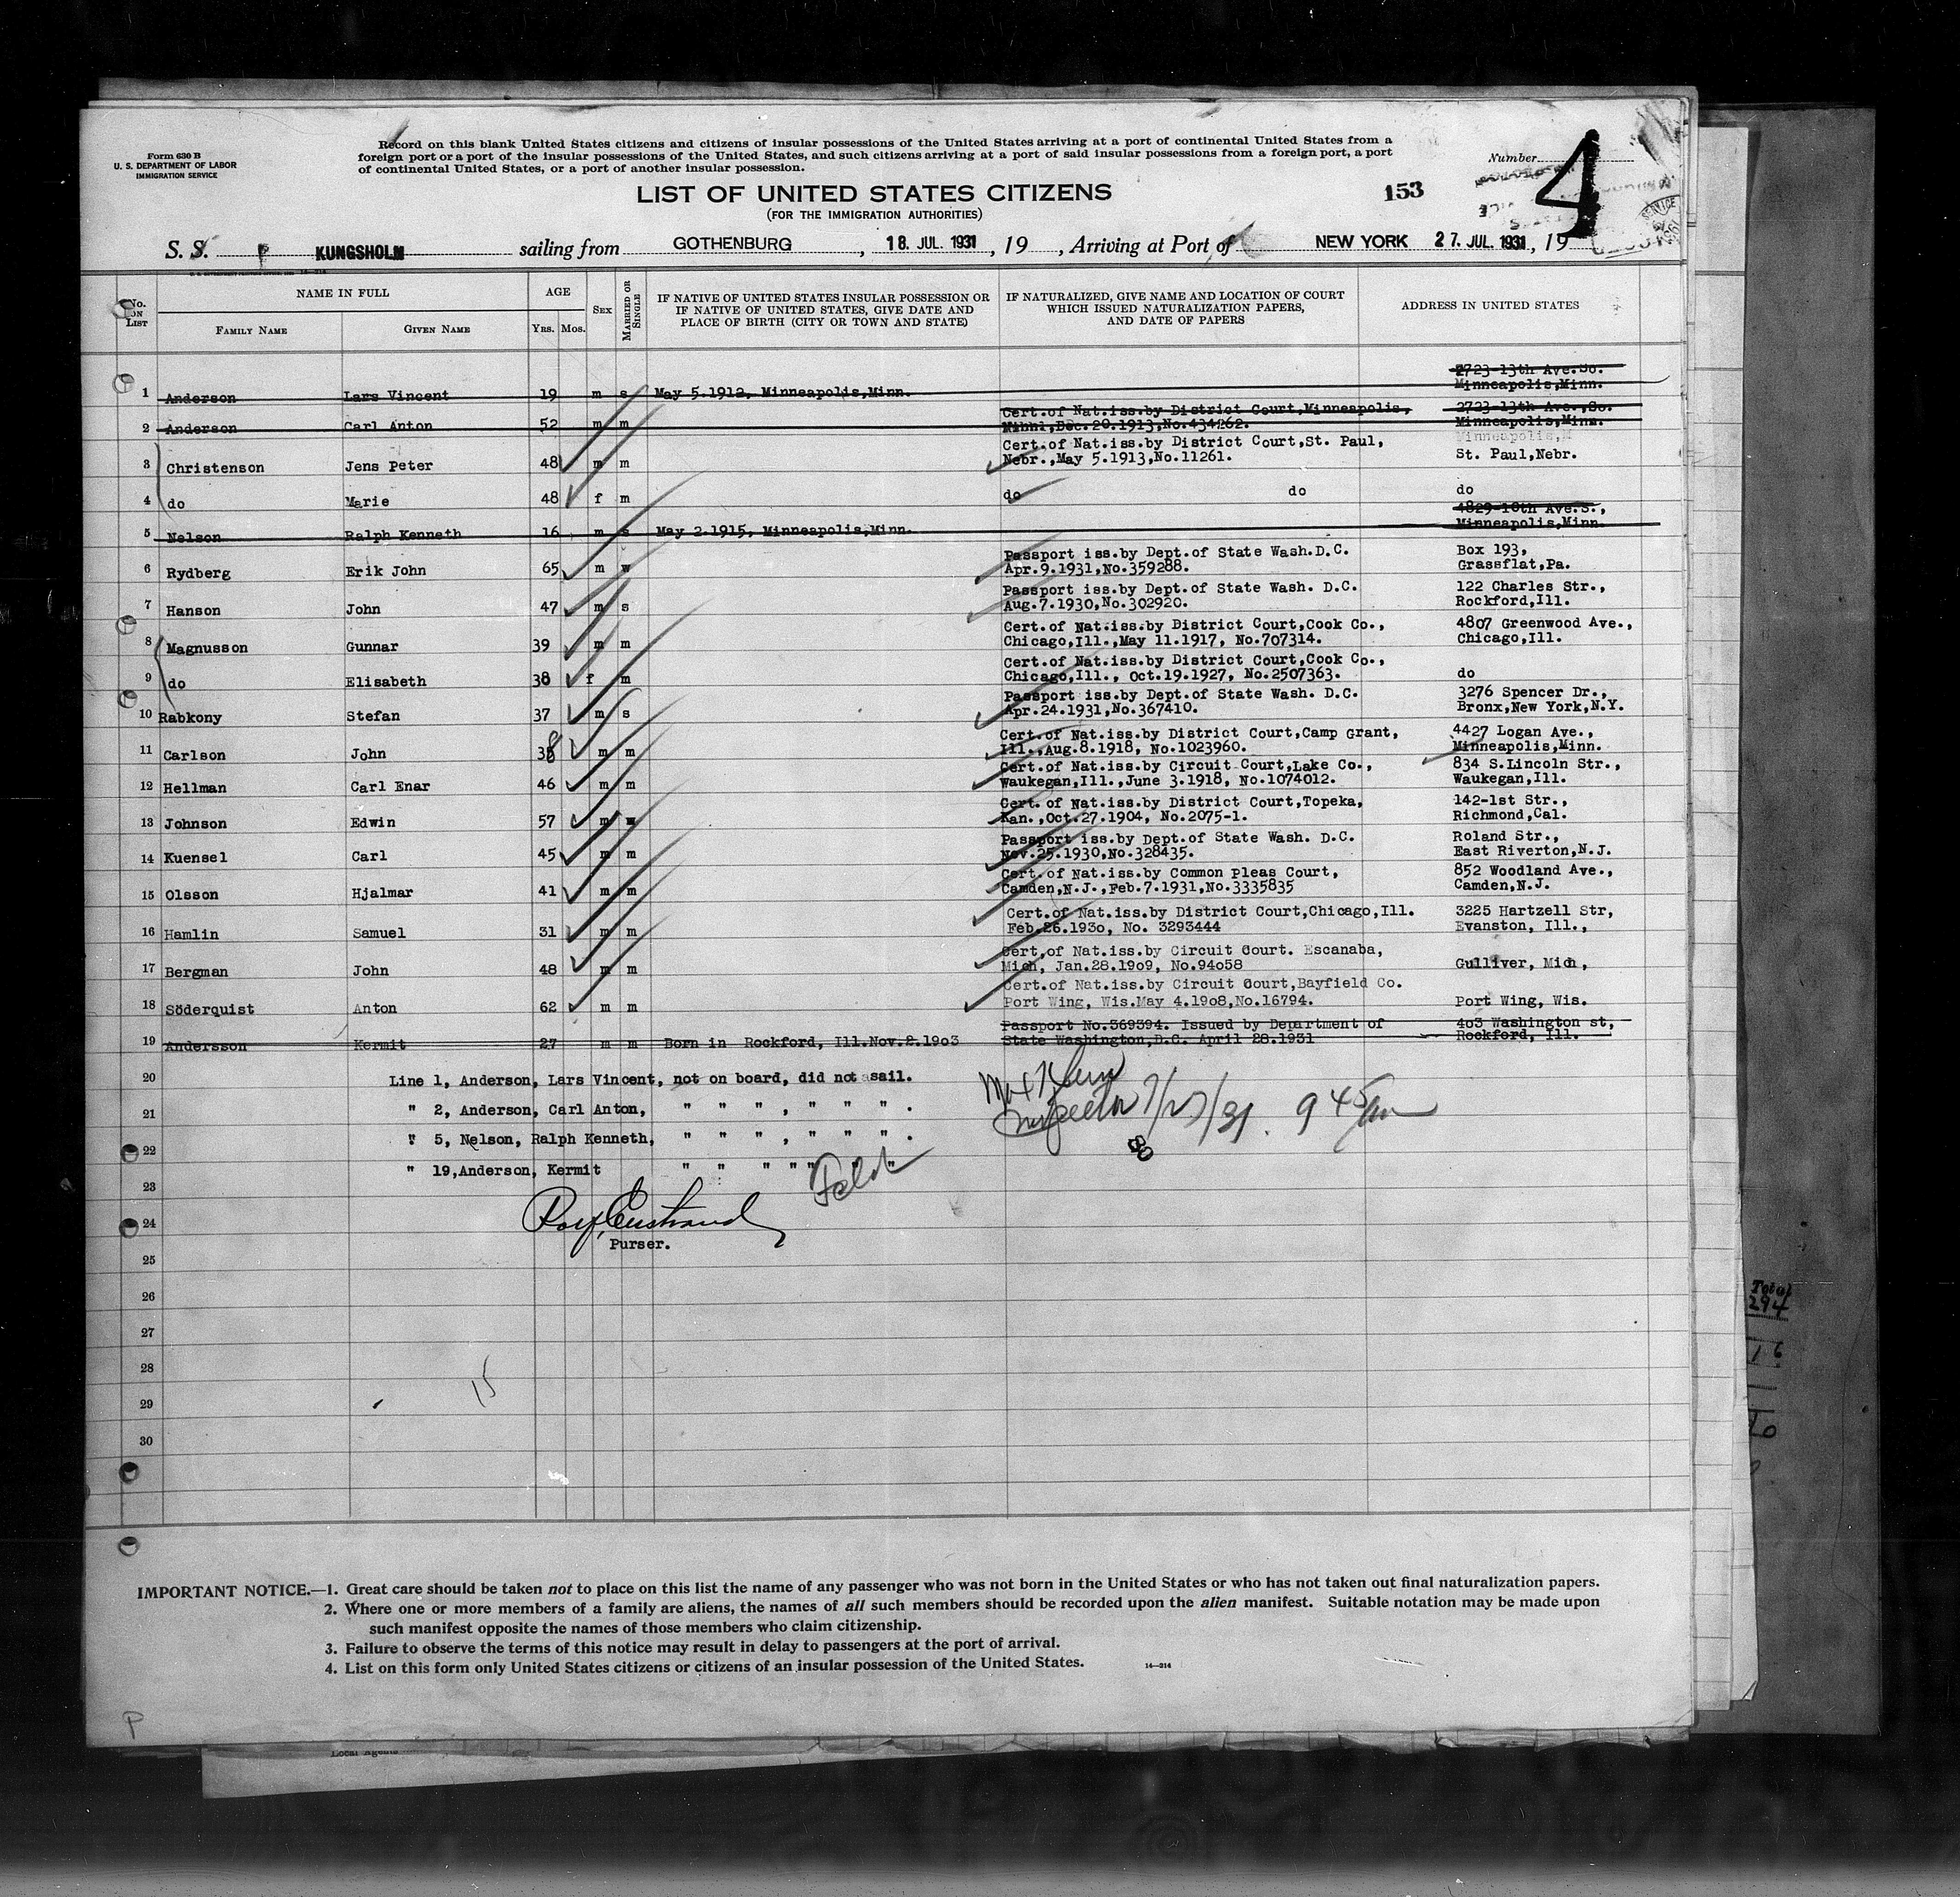 Form 630 B
U. S. DEPARTMENT OF LABOR
IMMIGRATION SERVICE
Record on this blank United States citizens and citizens of insular possessions of the United States arriving at a port of continental United States from a
foreign port or a port of the insular possessions of the United States, and such citizens arriving at a port of said insular possessions from a foreign port, a port
of continental United States, or a port of another insular possession.
Number 4
LIST OF UNITED STATES CITIZENS
153
(FOR THE IMMIGRATION AUTHORITIES)
S. S. KUNGSHOLM sailing from GOTHENBURG, 18. JUL. 1931, 19, Arriving at Port of NEW YORK 27. JUL. 1931, 19
No. ON LIST
NAME IN FULL
FAMILY NAME
GIVEN NAME
AGE
YRS. MOS.
SEX
MARRIED OR SINGLE
IF NATIVE OF UNITED STATES INSULAR POSSESSION OR
IF NATIVE OF UNITED STATES, GIVE DATE AND
PLACE OF BIRTH (CITY OR TOWN AND STATE)
IF NATURALIZED, GIVE NAME AND LOCATION OF COURT
WHICH ISSUED NATURALIZATION PAPERS,
AND DATE OF PAPERS
ADDRESS IN UNITED STATES
2723 13th Ave.So.
1 Anderson Lars Vincent 19 m s May 5.1912, Minneapolis,Minn. Minneapolis,Minn.
Cert.of Nat.iss.by District Court,Minneapolis, 2723-13th Ave.,So.
2 Anderson Carl Anton 52 m m Dec.20.1913,No.434262. Minneapolis,Minn.
Cert.of Nat.iss.by District Court,St. Paul, Minneapolis,M
3 Christenson Jens Peter 48 m m Nebr.,May 5.1913,No.11261. St. Paul,Nebr.
4 do Marie 48 f m do do do
4829-10th Ave.S.,
5 Nelson Ralph Kenneth 16 m s May 2.1915, Minneapolis,Minn. Minneapolis,Minn.
Passport iss.by Dept.of State Wash.D.C. Box 193,
6 Rydberg Erik John 65 m w Apr.9.1931,No.359288. Grassflat,Pa.
Passport iss.by Dept.of State Wash. D.C. 122 Charles Str.,
7 Hanson John 47 m s Aug.7.1930,No.302920. Rockford,Ill.
Cert.of Nat.iss.by District Court,Cook Co., 4807 Greenwood Ave.,
8 Magnusson Gunnar 39 m m Chicago,Ill.,May 11.1917, No.707314. Chicago,Ill.
Cert.of Nat.iss.by District Court,Cook Co.,
9 do Elisabeth 38 f m Chicago,Ill., Oct.19.1927, No.2507363. do
Passport iss.by Dept.of State Wash. D.C. 3276 Spencer Dr.,
10 Rabkony Stefan 37 m s Apr.24.1931,No.367410. Bronx,New York,N.Y.
Cert.of Nat.iss.by District Court,Camp Grant, 4427 Logan Ave.,
11 Carlson John 38 m m Ill.,Aug.8.1918, No.1023960. Minneapolis,Minn.
Cert.of Nat.iss.by Circuit Court,Lake Co., 834 S.Lincoln Str.,
12 Hellman Carl Enar 46 m m Waukegan,Ill.,June 3.1918, No.1074012. Waukegan,Ill.
Cert. of Nat.iss.by District Court,Topeka, 142-1st Str.,
13 Johnson Edwin 57 m Kan.,Oct.27.1904, No.2075-1. Richmond,Cal.
Passport iss.by Dept.of State Wash. D.C. Roland Str.,
14 Kuensel Carl 45 m m Nov.25.1930,No.328435. East Riverton,N.J.
Cert.of Nat.iss.by Common Pleas Court, 852 Woodland Ave.,
15 Olsson Hjalmar 41 m m Camden,N.J.,Feb.7.1931,No.3335835 Camden,N.J.
Cert.of Nat.iss.by District Court,Chicago,Ill. 3225 Hartzell Str,
16 Hamlin Samuel 31 m m Feb.26.1930, No. 3293444 Evanston, Ill.,
Cert.of Nat.iss.by Circuit Court. Escanaba,
17 Bergman John 48 m m Mich, Jan.28.1909, No.94058 Gulliver, Mich,
Cert.of Nat.iss.by Circuit Court,Bayfield Co.
18 Söderquist Anton 62 m m Port Wing, Wis.May 4.1908,No.16794. Port Wing, Wis.
Passport No.369394. Issued by Department of 403 Washington st,
19 Andersson Kermit 27 m m Born in Rockford, Ill.Nov.2.1903 State Washington,D.C. April 28.1931 Rockford, Ill.
20 Line 1, Anderson, Lars Vincent, not on board, did not sail.
21 " 2, Anderson, Carl Anton, " " " , " " " .
Inspector 7/27/31. 9 45 am
22 " 5, Nelson, Ralph Kenneth, " " " , " " " .
23 " 19,Anderson, Kermit " " " " " "
24
Purser.
25
26
27
28
15
29
30
Total
294
IMPORTANT NOTICE.—1. Great care should be taken not to place on this list the name of any passenger who was not born in the United States or who has not taken out final naturalization papers.
2. Where one or more members of a family are aliens, the names of all such members should be recorded upon the alien manifest. Suitable notation may be made upon
such manifest opposite the names of those members who claim citizenship.
3. Failure to observe the terms of this notice may result in delay to passengers at the port of arrival.
4. List on this form only United States citizens or citizens of an insular possession of the United States. 14—214
P
Local Agents